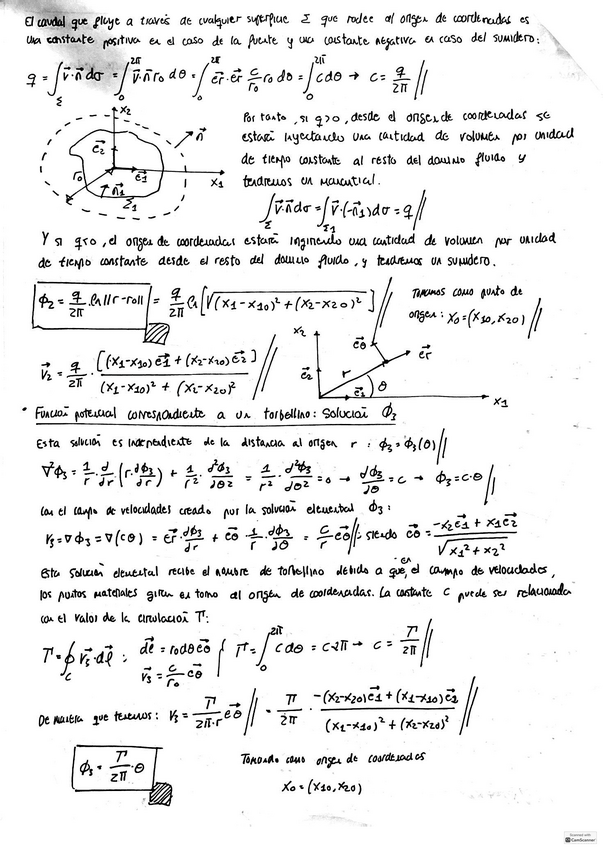 El caudal que fluye a través de cualquier superficie Σ que rodee al origen de coordenadas es
una constante positiva en el caso de la fuente y una constante negativa en caso del sumidero:
q = ∫_Σ v⃗·n⃗ dσ = ∫_0^{2π} v⃗·n⃗ r₀ dθ = ∫_0^{2π} e⃗r·e⃗r c/r₀ r₀ dθ = ∫_0^{2π} c dθ → c = q/2π //
x₂
e⃗₂
n⃗
r₀
e⃗₁
x₁
n⃗₁
Σ₁
Por tanto, si q>0, desde el origen de coordenadas se
estará inyectando una cantidad de volumen por unidad
de tiempo constante al resto del dominio fluido y
tendremos un manantial.
∫_Σ v⃗·n⃗ dσ = ∫_Σ₁ v⃗·(-n⃗₁) dσ = q //
Y si q<0, el origen de coordenadas estará ingiriendo una cantidad de volumen por unidad
de tiempo constante desde el resto del dominio fluido, y tendremos un sumidero.
ϕ₂ = q/2π · ln||r-r₀|| = q/2π ln[√((x₁-x₁₀)² + (x₂-x₂₀)²)] //
Tomamos como punto de
origen: x₀=(x₁₀, x₂₀) //
v⃗₂ = q/2π · [(x₁-x₁₀)e⃗₁ + (x₂-x₂₀)e⃗₂] / ((x₁-x₁₀)² + (x₂-x₂₀)²) //
x₂
e⃗θ
e⃗r
e⃗₂
r
θ
e⃗₁
x₁
• Función potencial correspondiente a un torbellino: Solución ϕ₃
Esta solución es independiente de la distancia al origen r : ϕ₃ = ϕ₃(θ) //
∇²ϕ₃ = 1/r · d/dr (r · dϕ₃/dr) + 1/r² · d²ϕ₃/dθ² = 1/r² · d²ϕ₃/dθ² = 0 → dϕ₃/dθ = c → ϕ₃ = c·θ //
con el campo de velocidades creado por la solución elemental ϕ₃ :
v₃ = ∇ϕ₃ = ∇(cθ) = e⃗r · dϕ₃/dr + e⃗θ · 1/r · dϕ₃/dθ = c/r e⃗θ //; siendo e⃗θ = (-x₂e⃗₁ + x₁e⃗₂)/√(x₁² + x₂²)
Esta solución elemental recibe el nombre de torbellino debido a que, en el campo de velocidades,
los puntos materiales giran en torno al origen de coordenadas. La constante c puede ser relacionada
con el valor de la circulación Γ:
Γ = ∮_C v⃗₃·dl⃗ : dl⃗ = r₀dθe⃗θ
v⃗₃ = c/r₀ e⃗θ { Γ = ∫_0^{2π} c dθ = c·2π → c = Γ/2π //
De manera que tenemos: v₃ = Γ/(2π·r) e⃗θ // = Γ/2π · (-(x₂-x₂₀)e⃗₁ + (x₁-x₁₀)e⃗₂) / ((x₁-x₁₀)² + (x₂-x₂₀)²) //
ϕ₃ = Γ/2π · θ
Tomando como origen de coordenadas
x₀ = (x₁₀, x₂₀)
Scanned with
CamScanner